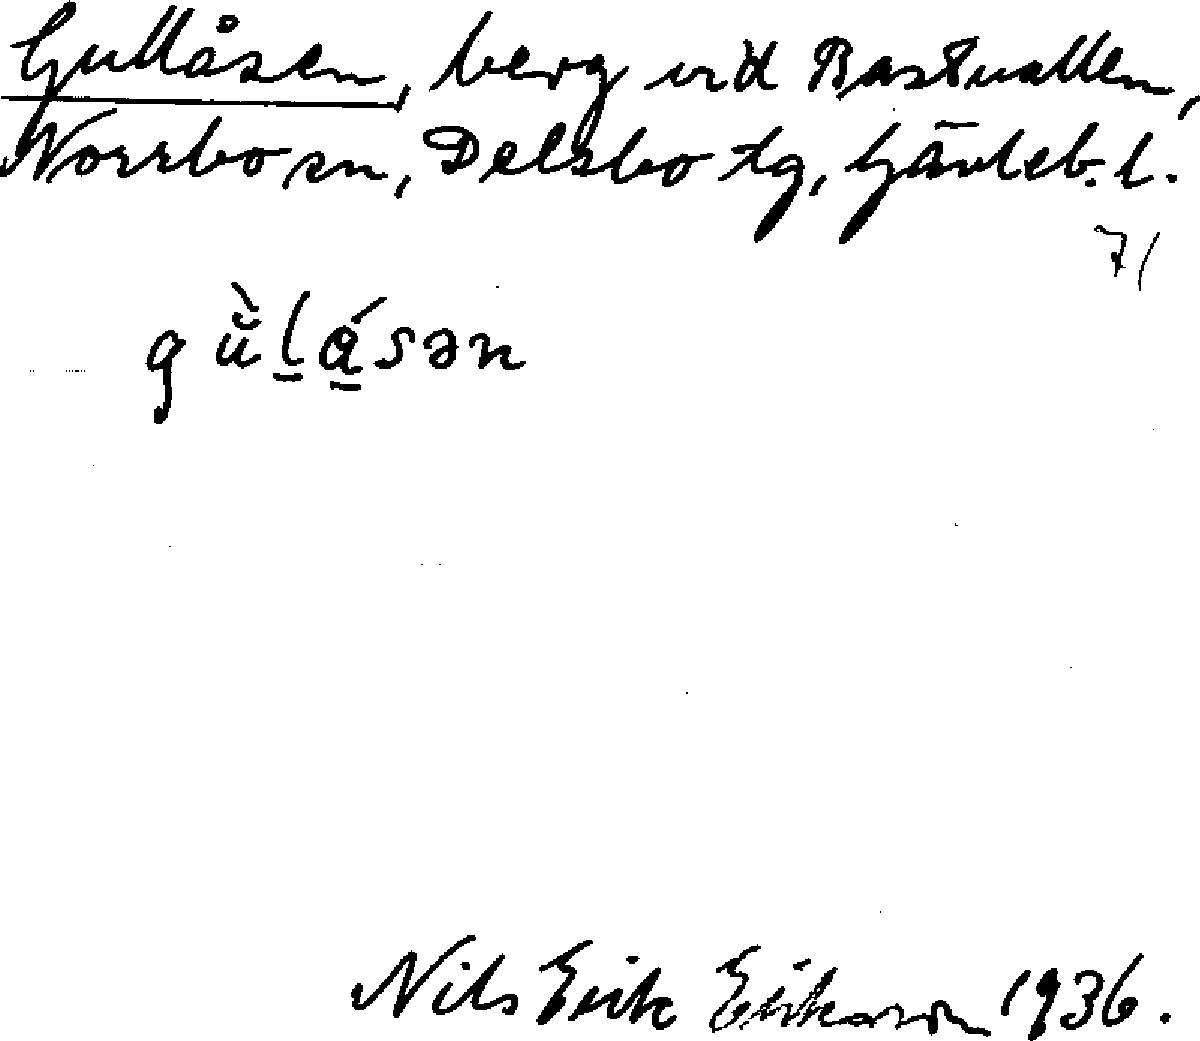 Gullåsen, berg vid Bastuvallen,
Norrbo sn, Delsbo tg, Gävleb. l.
71
gù̆l̠ásən
Nils Erik Erikson 1936.